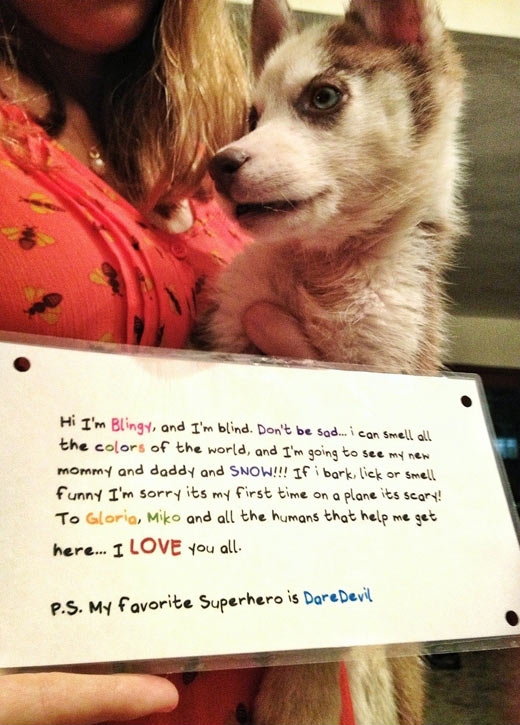 Hi I'm Blingy, and I'm blind. Don't be sad... i can smell all
the colors of the world, and I'm going to see my new
mommy and daddy and SNOW!!! If i bark, lick or smell
funny I'm sorry its my first time on a plane its scary!
To Gloria, Miko and all the humans that help me get
here... I LOVE you all.
P.S. My favorite Superhero is DareDevil